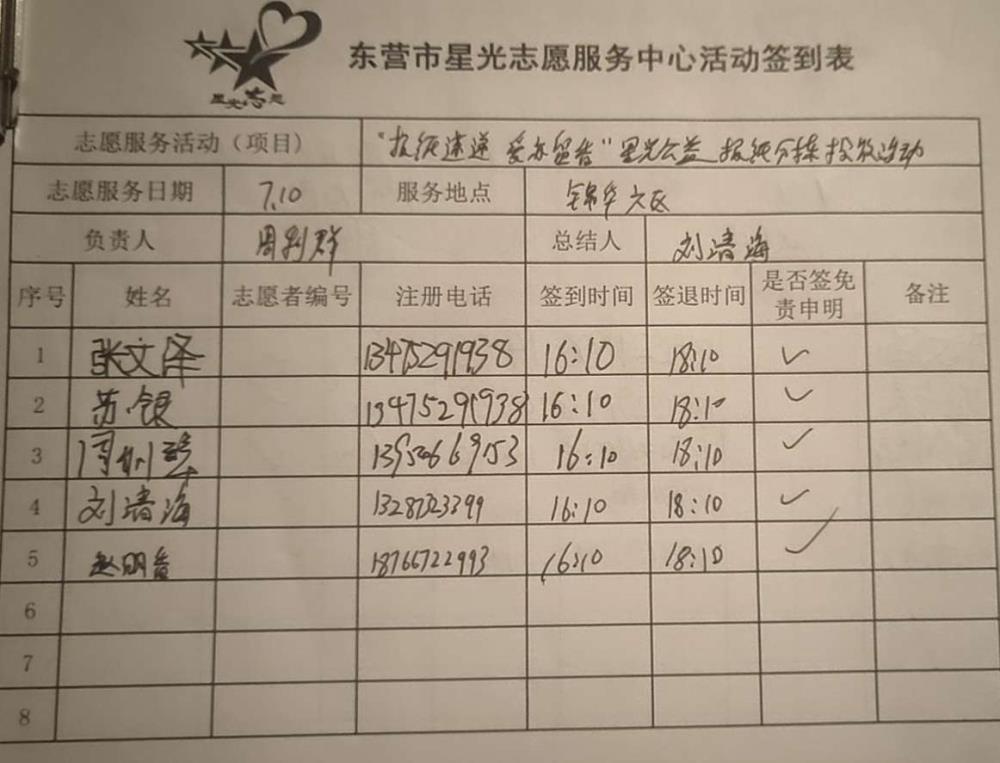 星光志愿
东营市星光志愿服务中心活动签到表
志愿服务活动（项目） "报纸速递 爱亦留香"星光公益 报纸分拣投放活动
志愿服务日期 7.10 服务地点 锦华六区
负责人 周利群 总结人 刘清海
序号 姓名 志愿者编号 注册电话 签到时间 签退时间 是否签免责申明 备注
1 张文泽 13475291938 16:10 18:10 ✓
2 苏银 13475291938 16:10 18:10 ✓
3 16:10 18:10 ✓
4 刘清海 16:10 18:10 ✓
5 18766722993 16:10 18:10 ✓
6
7
8